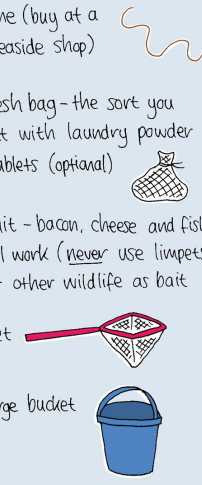 ne (buy at a
easide shop)
esh bag – the sort you
t with laundry powder
ablets (optional)
ait – bacon, cheese and fis
l work (never use limpets
other wildlife as bait
et
rge bucket